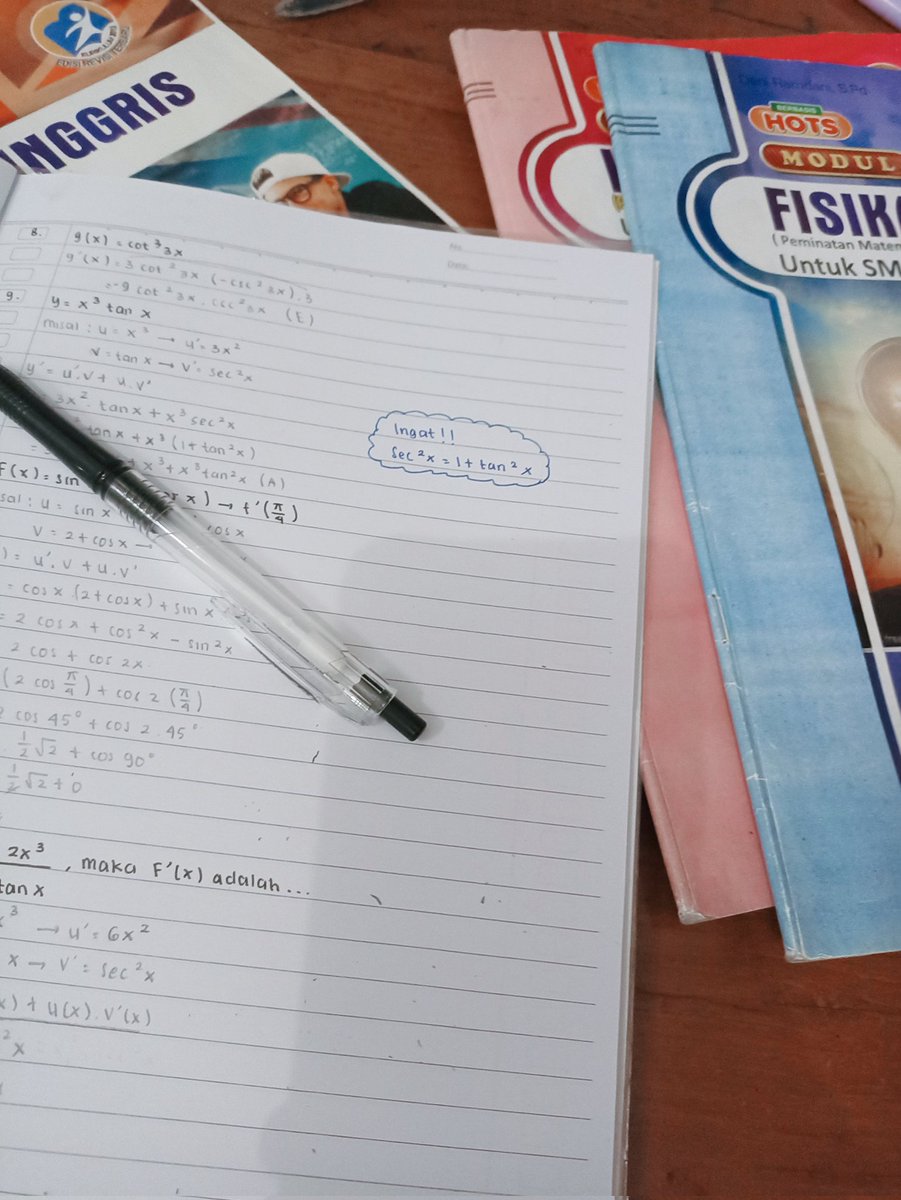 EDISI REVISI TERBARU
INGGRIS
Deni Ramdani, S.Pd
BERBASIS
HOTS
MODUL
FISIK
(Peminatan Matem
Untuk SM
No.
Date.
8. g(x) = cot ³ 3x
g'(x) = 3 cot ² 3x (-csc² 3x) . 3
= -9 cot ² 3x . csc² 3x (E)
9. y = x³ tan x
misal : u = x³ → u' = 3x²
v = tan x → v' = sec²x
y' = u'.v + u.v'
3x². tan x + x³ sec²x
tan x + x³ (1 + tan²x)
+ x³ + x³ tan²x (A)
Ingat !!
sec²x = 1 + tan²x
F(x) = sin x) → f'(π/4)
sal : u = sin x cos x
v = 2 + cos x →
) = u'.v + u.v'
= cos x (2 + cos x) + sin x
= 2 cos x + cos²x - sin²x
2 cos + cos 2x
(2 cos π/4) + cos 2 (π/4)
cos 45° + cos 2 . 45°
1/2 √2 + cos 90°
1/2 √2 + 0
2x³ , maka F'(x) adalah ...
tan x
³ → u' = 6x²
x → v' = sec²x
x) + u(x). v'(x)
²x